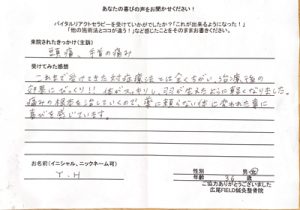 あなたの喜びの声をお聞かせください!
バイタルリアクトセラピーを受けていかがでしたか?「これが出来るようになった!」
「他の施術法とココが違う!」など感じたことをそのままお書きください。
来院されたきっかけ(主訴)
頭痛、手首の痛み
受けてみた感想
これまで受けてきた対症療法とは全くちがい、治療後の
効果にびっくり!! 体がスッキリし、羽が生えたように軽くなりました。
痛みの根本を治していくので、薬に頼らない体に変われた事に
喜びを感じています。
お名前(イニシャル、ニックネーム可)
Y.H
性別 男 女
年齢 36 歳
ご協力ありがとうございました
広尾FIELD鍼灸整骨院